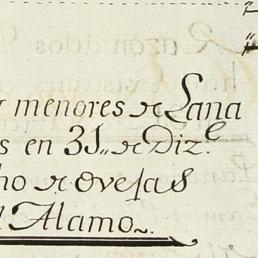 menores de Lana
s en 31,, de Diz.e
ho de ovejas
l Alamo.